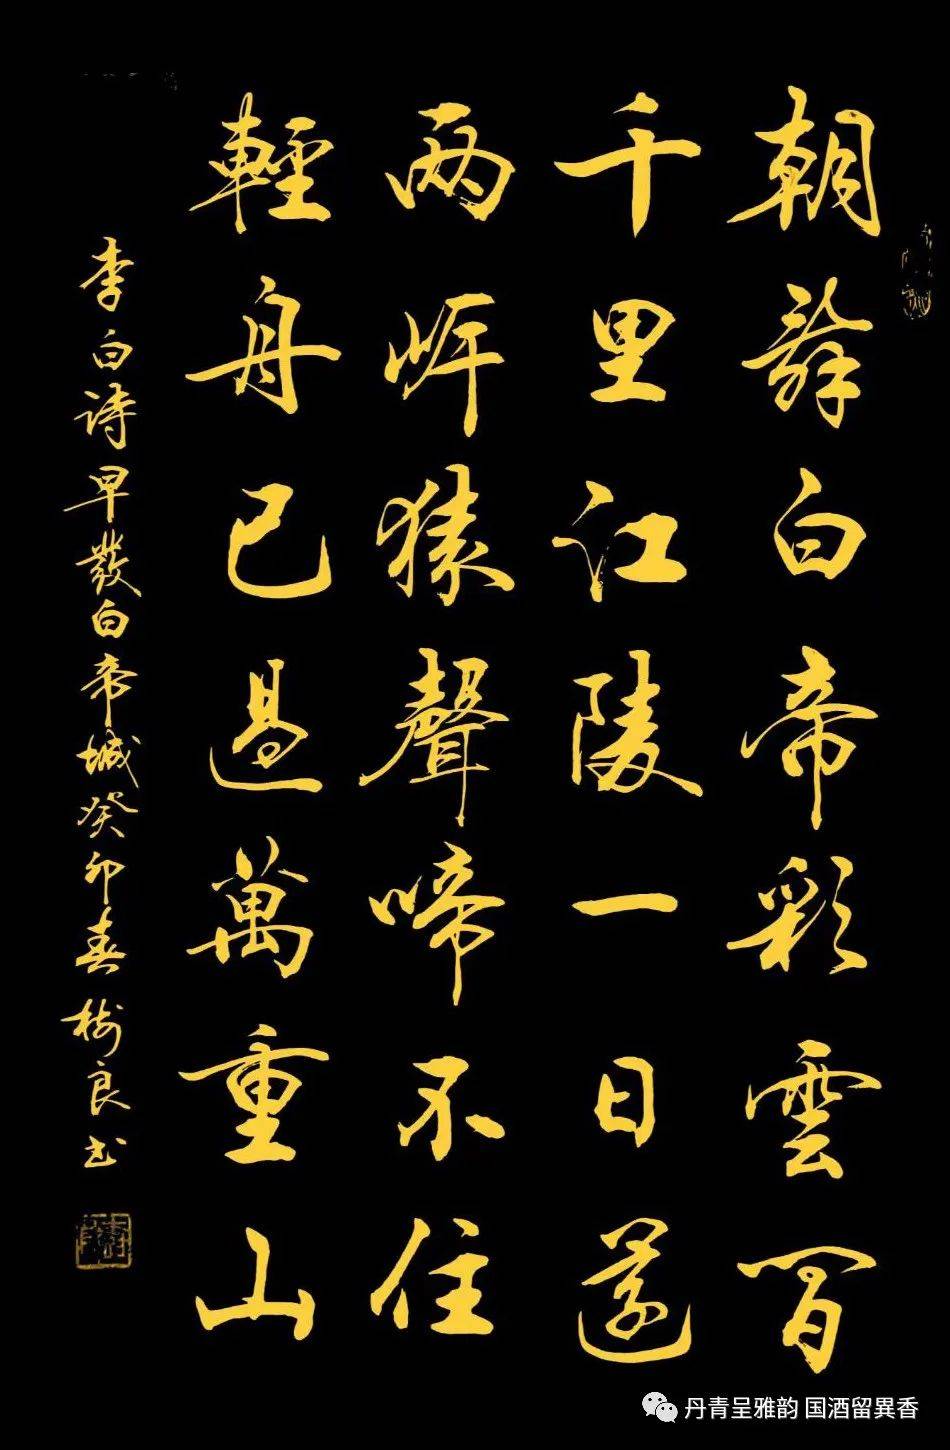 朝辭白帝彩雲間
千里江陵一日還
两岸猿聲啼不住
輕舟已過萬重山
李白诗早發白帝城癸卯春樹良书
丹青呈雅韵 国酒留異香